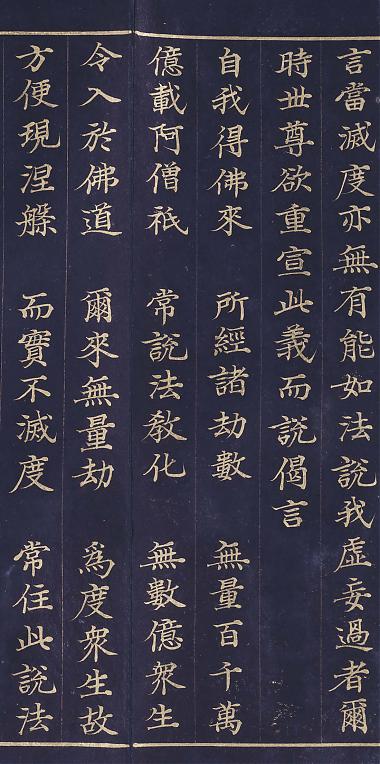 言當滅度亦無有能如法說我虛妄過者爾
時世尊欲重宣此義而說偈言
自我得佛來　所經諸劫數　無量百千萬
億載阿僧祇　常說法教化　無數億衆生
令入於佛道　爾來無量劫　爲度衆生故
方便現涅槃　而實不滅度　常住此說法